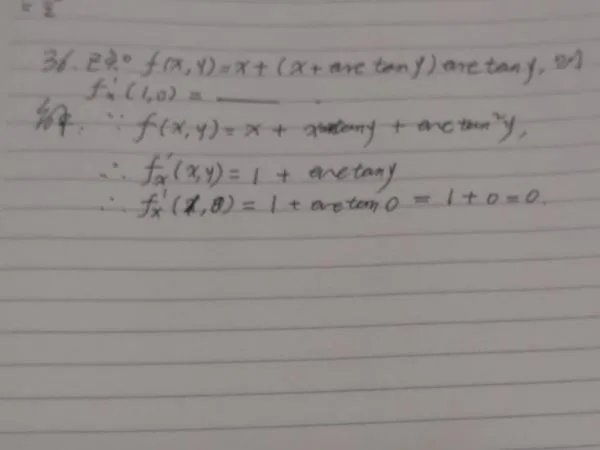 36. 已知 f(x,y)=x+(x+arc tany)arc tany, 则
f'x(1,0)=____.
解: ∵ f(x,y)=x+ xarctany + arctan²y,
∴ f'x(x,y)=1+ arctany
∴ f'x(1,0)=1+arctan0=1+0=0.